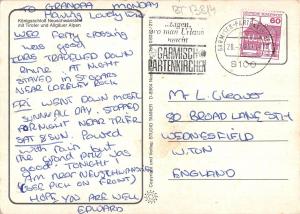 TO GRANDPA MONDAY
Having Lovely
Königsschloß Neuschwanstein
mit Tiroler und Allgäuer Alpen
WED Ferry crossing
was good
TURS TRAVELLED DOWN
RHINE AT NIGHT
STAYED IN ST GOARS
NEAR LORELEY ROCK
FRI WENT DOWN MOSEL
SUNNY ALL DAY. STOPPED
FOR NIGHT NEAR TRIER
SAT & SUN. Poured
with rain but
the Grand prix was
good. TONIGHT I
Am near NEUSCHWANSTEIN
(SEE PICK ON FRONT)
HOPE YOU ARE WELL
EDWARD
wo man Urlaub
macht
GARMISCH-
PARTENKIRCHEN
GARMISCH-PARTEN
8100
60
DEUTSCHE BUNDESPOST
Mr L. Clewer
90 BROAD LANE STH
WEDNESFIELD
W.TON
ENGLAND